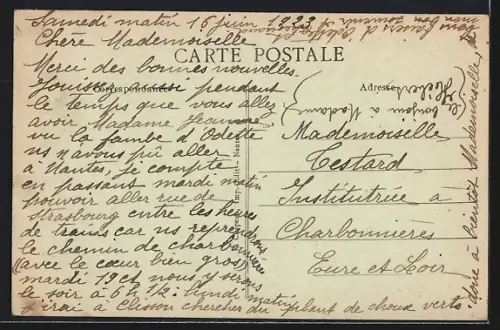 Samedi matin 16 juin 1923
Chère Mademoiselle
CARTE POSTALE
Merci des bonnes nouvelles.
Correspondance
Adresse
Jouissez pendant
le temps que vous allez
avoir Madame Jeanne
vu la jambe d'Odette
ns n'avons pu aller
à Nantes, je compte
en passant mardi matin
pouvoir aller rue de
Strasbourg entre les heures
de trains car ns reprendrons
le chemin de charbonnières
(avec le cœur bien gros)
mardi 19 et nous y serons
le soir à 6h 1/2: lundi matin
j'irai à Clisson chercher du plant de choux verts.
Mademoiselle
Testard
Institutrice à
Charbonnières
Eure et Loir
donc à bientôt Mademoiselle
bonjour à Madame